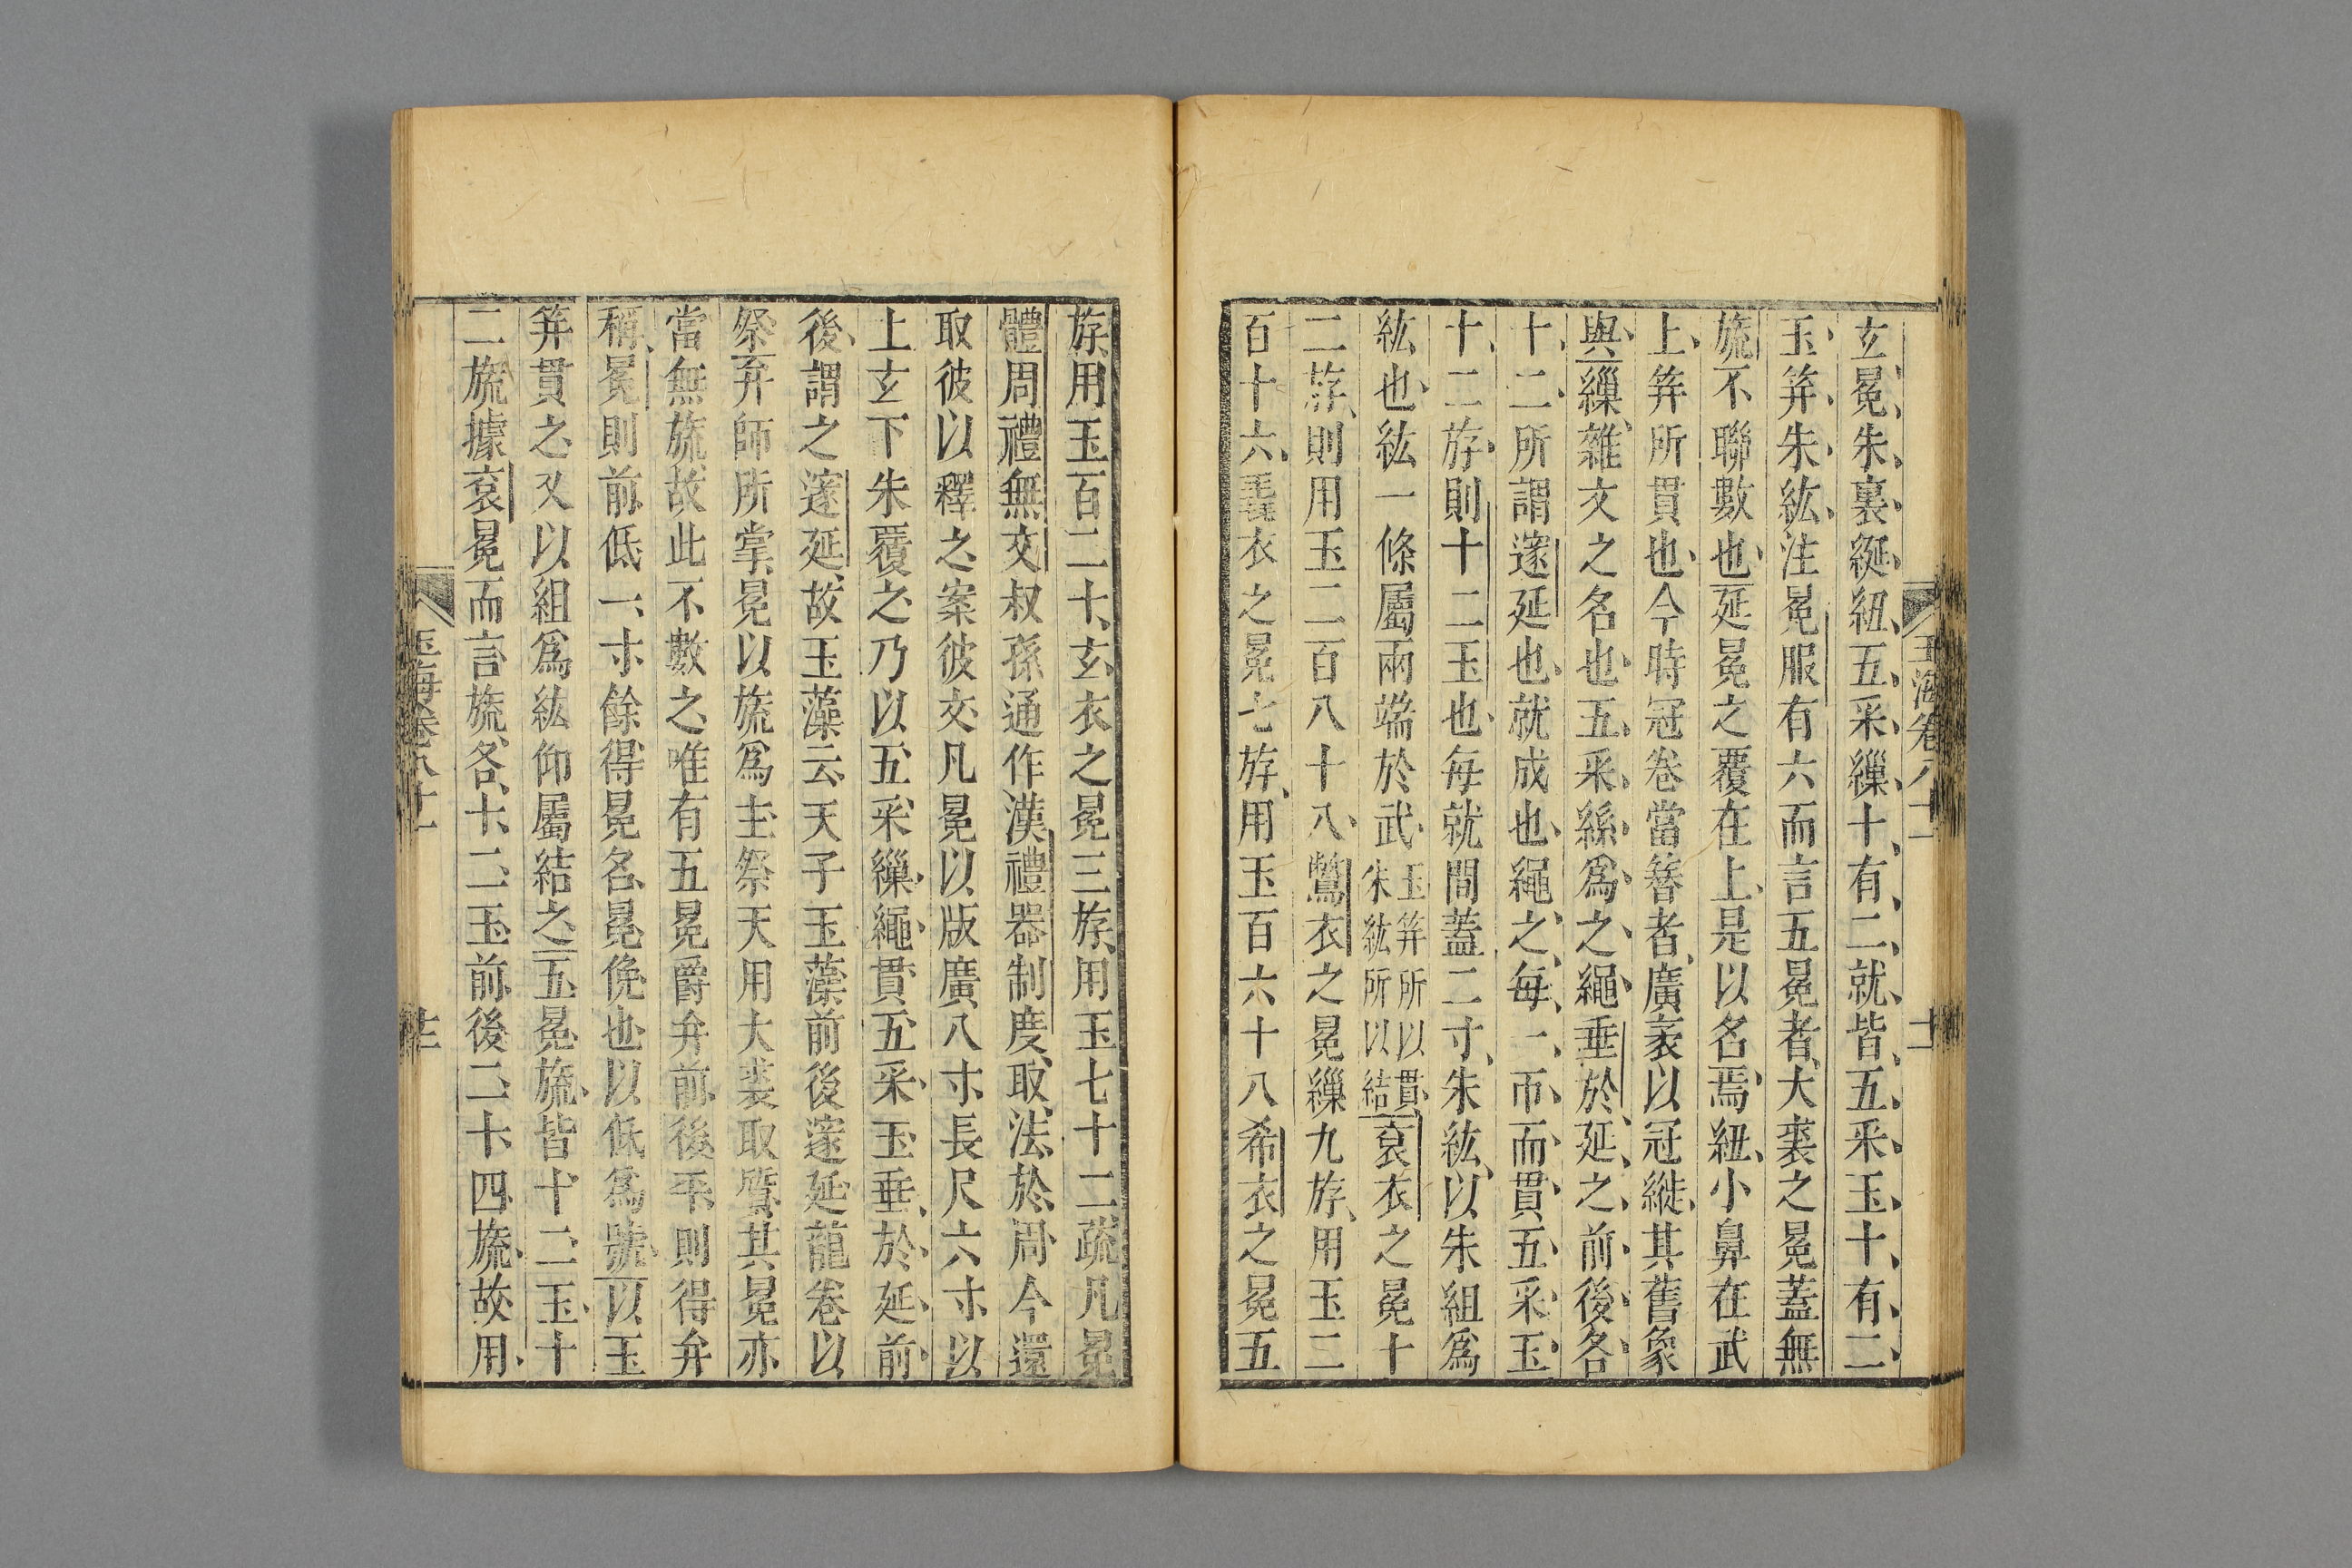 玄冕朱裏綖紐五采繅十有二就皆五采玉十有二
玉笄朱紘注冕服有六而言五冕者大裘之冕蓋無
旒不聯數也延冕之覆在上是以名焉紐小鼻在武
上笄所貫也今時冠卷當簪者廣袤以冠縰其舊象
與繅雜文之名也五采絲爲之繩垂於延之前後各
十二所謂邃延也就成也繩之每一帀而貫五采玉
十二斿則十二玉也每就間蓋一寸朱紘以朱組爲
紘也紘一條屬兩端於武玉笄所以貫朱紘所以結袞衣之冕十
二斿則用玉二百八十八鷩衣之冕繅九斿用玉二
百十六毳衣之冕七斿用玉百六十八希衣之冕五
斿用玉百二十玄衣之冕三斿用玉七十二疏凡冕
體周禮無文叔孫通作漢禮器制度取法於周今還
取彼以釋之案彼文凡冕以版廣八寸長尺六寸以
上玄下朱覆之乃以五采繅繩貫五采玉垂於延前
後謂之邃延故玉藻云天子玉藻前後邃延龍卷以
祭弁師所掌冕以旒爲主祭天用大裘取質其冕亦
當無旒故此不數之唯有五冕爵弁前後平則得弁
稱冕則前低一寸餘得冕名冕俛也以低爲號以玉
笄貫之又以組爲紘仰屬結之五冕旒皆十二玉十
二旒據袞冕而言旒各十二玉前後二十四旒故用
玉海卷八十一
十
玉海卷八十一